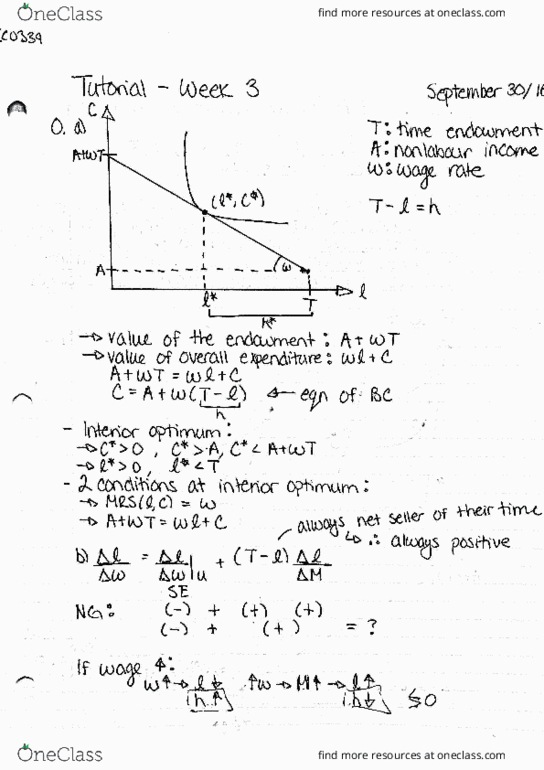 OneClass
find more resources at oneclass.com
CO339
Tutorial - Week 3
September 30/16
0. a)
C
T: time endowment
A: nonlabour income
w: wage rate
T - l = h
A+wT
(l*, C*)
w
A
l*
T
l
h*
→ value of the endowment: A + wT
→ value of overall expenditure: wl + C
A + wT = wl + C
C = A + w(T - l) ← eqn of BC
h
- Interior optimum:
→ C* > 0 , C* > A, C* < A+wT
→ l* > 0 , l* < T
- 2 conditions at interior optimum:
→ MRS(l,C) = w
→ A+wT = wl + C
always net seller of their time
↳ ∴ always positive
b) Δl/Δw = Δl/Δw|u + (T-l) Δl/ΔM
SE
NG: (-) + (+) (+)
(-) + (+) = ?
If wage ↑:
w↑ → l↓ ↑w → M↑ → l↑
h↑ h↓ ≶ 0
OneClass
find more resources at oneclass.com